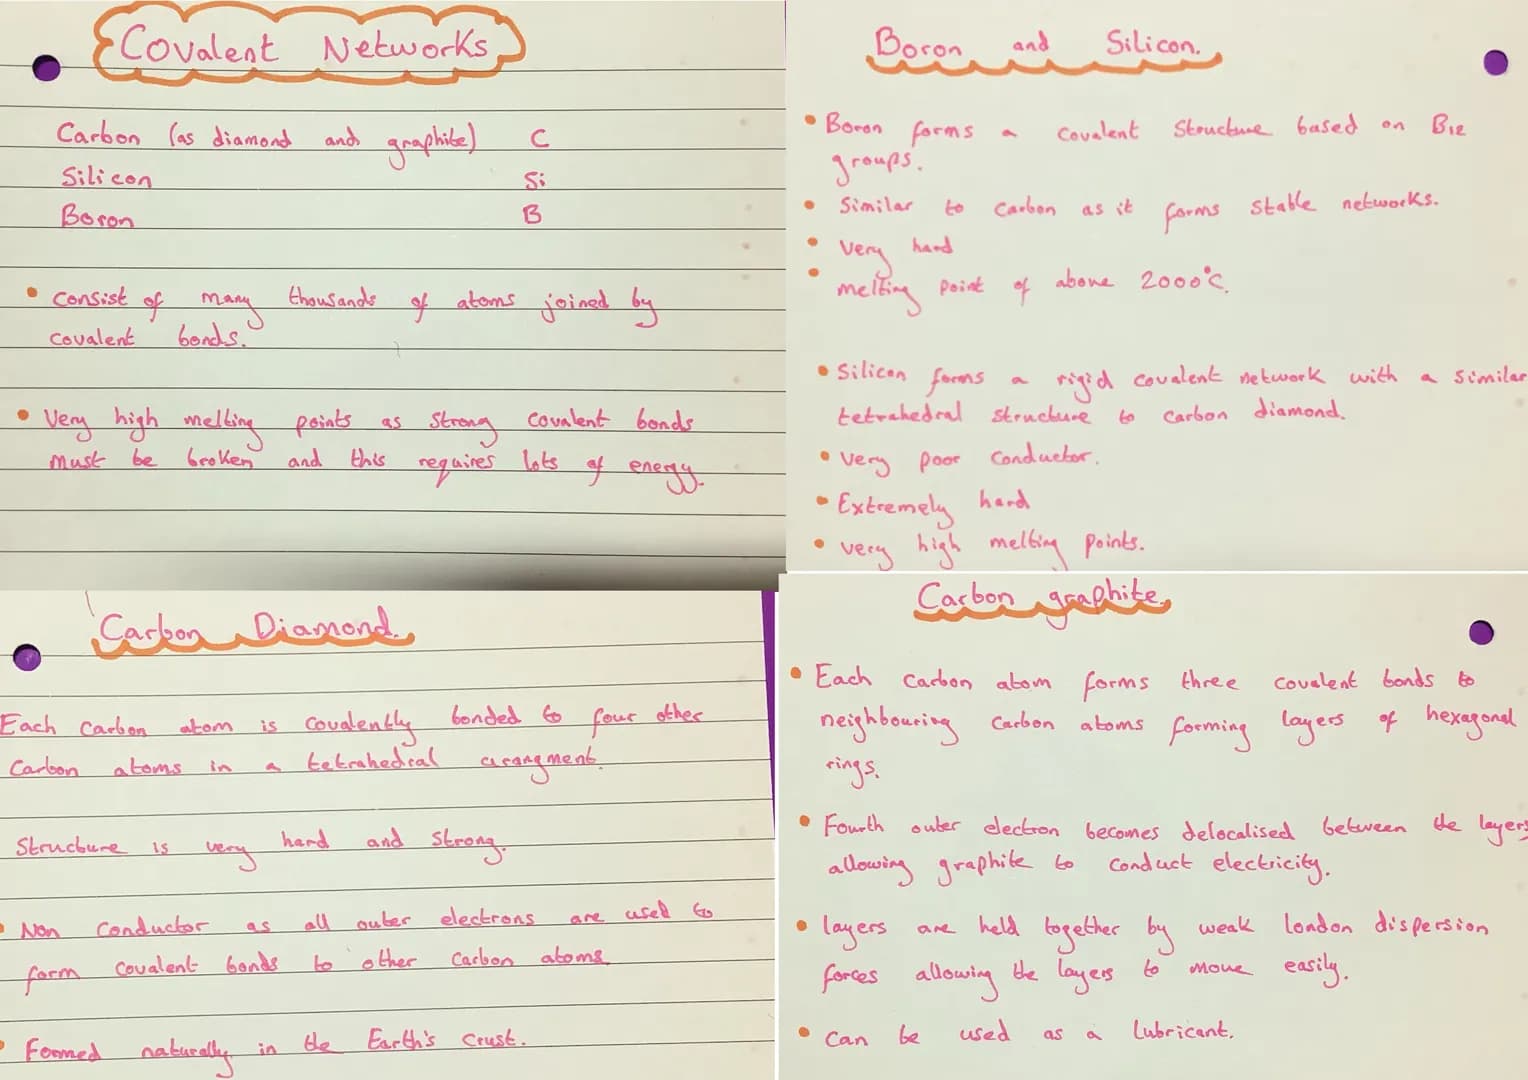 Covalent Networks
Carbon (as diamond and graphite) C
Silicon Si
Boron B
• Consist of many thousands of atoms joined by
covalent bonds.
• Very high melting points as strong covalent bonds
must be broken and this requires lots of energy.
Boron and Silicon.
• Boron forms a covalent structure based on B12
groups.
• Similar to carbon as it forms stable networks.
• Very hard
• melting point of above 2000°C.
• Silicon forms a rigid covalent network with a similar
tetrahedral structure to carbon diamond.
• very poor conductor.
• Extremely hard
• very high melting points.
Carbon Diamond.
Each carbon atom is covalently bonded to four other
carbon atoms in a tetrahedral arangment.
Structure is very hard and strong.
• Non conductor as all outer electrons are used to
form covalent bonds to other carbon atoms
• Formed naturally in the Earth's crust.
Carbon graphite.
• Each carbon atom forms three covalent bonds to
neighbouring carbon atoms forming layers of hexagonal
rings.
• Fourth outer electron becomes delocalised between the layers
allowing graphite to conduct electricity.
• layers are held together by weak london dispersion
forces allowing the layers to move easily.
• Can be used as a lubricant.